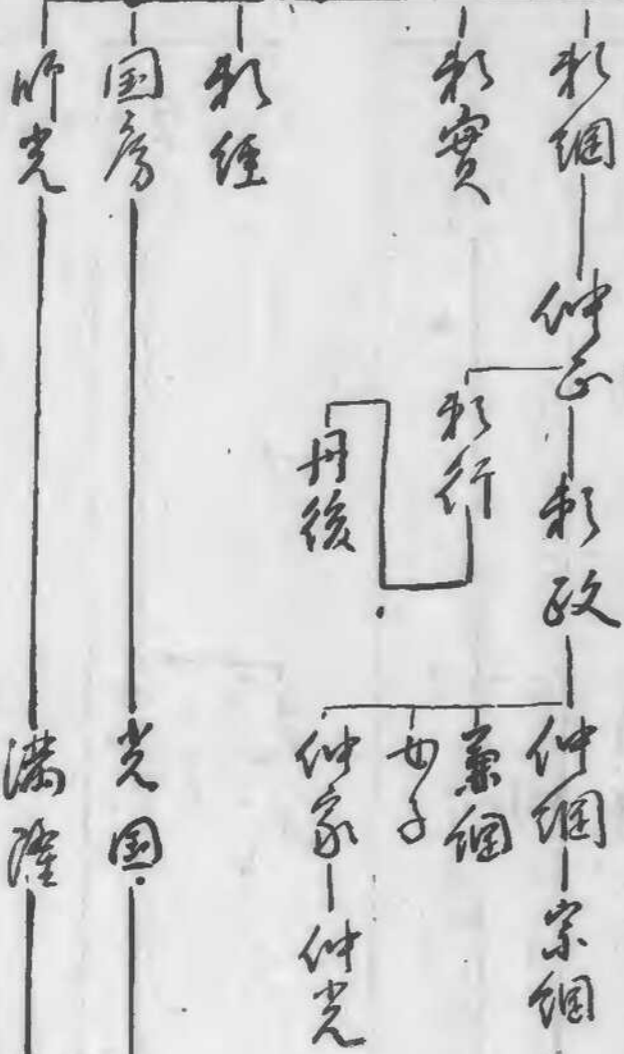 頼綱
仲正
頼政
仲綱
宗綱
兼綱
女子
仲家
仲光
頼行
丹後
頼實
頼経
国房
光国
師光
満隆